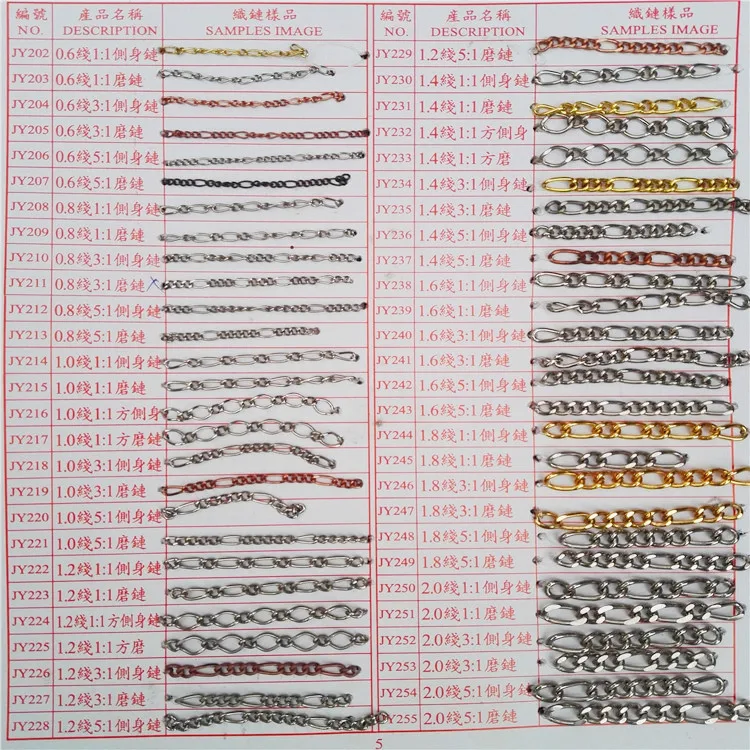 編號 產品名稱 織鏈樣品
NO. DESCRIPTION SAMPLES IMAGE
JY202 0.6綫1:1側身鏈
JY203 0.6綫1:1磨鏈
JY204 0.6綫3:1側身鏈
JY205 0.6綫3:1磨鏈
JY206 0.6綫5:1側身鏈
JY207 0.6綫5:1磨鏈
JY208 0.8綫1:1側身鏈
JY209 0.8綫1:1磨鏈
JY210 0.8綫3:1側身鏈
JY211 0.8綫3:1磨鏈
JY212 0.8綫5:1側身鏈
JY213 0.8綫5:1磨鏈
JY214 1.0綫1:1側身鏈
JY215 1.0綫1:1磨鏈
JY216 1.0綫1:1方側身
JY217 1.0綫1:1方磨
JY218 1.0綫3:1側身鏈
JY219 1.0綫3:1磨鏈
JY220 1.0綫5:1側身鏈
JY221 1.0綫5:1磨鏈
JY222 1.2綫1:1側身鏈
JY223 1.2綫1:1磨鏈
JY224 1.2綫1:1方側身鏈
JY225 1.2綫1:1方磨
JY226 1.2綫3:1側身鏈
JY227 1.2綫3:1磨鏈
JY228 1.2綫5:1側身鏈
編號 產品名稱 織鏈樣品
NO. DESCRIPTION SAMPLES IMAGE
JY229 1.2綫5:1磨鏈
JY230 1.4綫1:1側身鏈
JY231 1.4綫1:1磨鏈
JY232 1.4綫1:1方側身
JY233 1.4綫1:1方磨
JY234 1.4綫3:1側身鏈
JY235 1.4綫3:1磨鏈
JY236 1.4綫5:1側身鏈
JY237 1.4綫5:1磨鏈
JY238 1.6綫1:1側身鏈
JY239 1.6綫1:1磨鏈
JY240 1.6綫3:1側身鏈
JY241 1.6綫3:1磨鏈
JY242 1.6綫5:1側身鏈
JY243 1.6綫5:1磨鏈
JY244 1.8綫1:1側身鏈
JY245 1.8綫1:1磨鏈
JY246 1.8綫3:1側身鏈
JY247 1.8綫3:1磨鏈
JY248 1.8綫5:1側身鏈
JY249 1.8綫5:1磨鏈
JY250 2.0綫1:1側身鏈
JY251 2.0綫1:1磨鏈
JY252 2.0綫3:1側身鏈
JY253 2.0綫3:1磨鏈
JY254 2.0綫5:1側身鏈
JY255 2.0綫5:1磨鏈
5